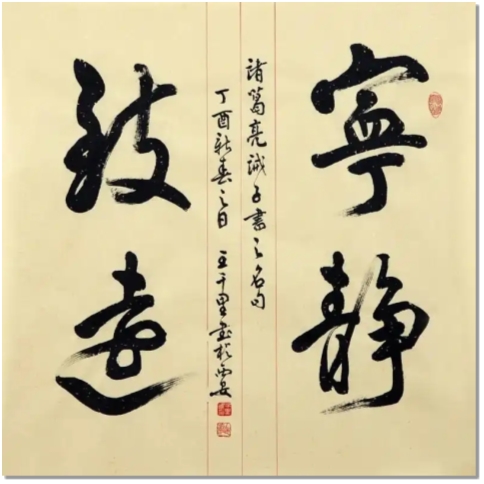 寧靜
致遠
諸葛亮誡子書之名句
丁酉新春之日 王千里書於西安